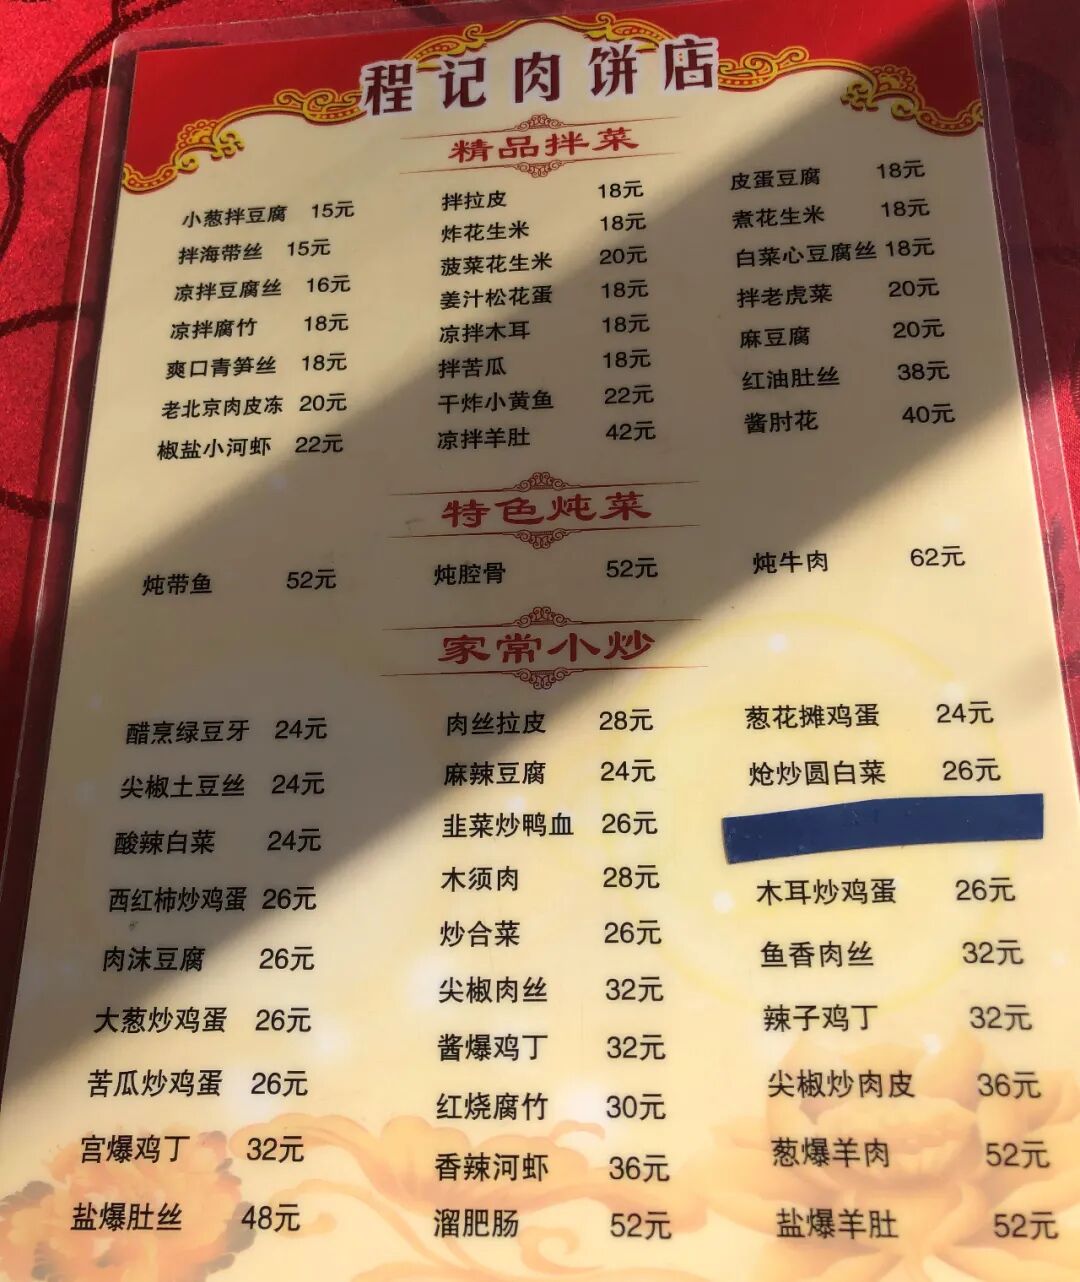 程记肉饼店
精品拌菜
小葱拌豆腐 15元 拌拉皮 18元 皮蛋豆腐 18元
拌海带丝 15元 炸花生米 18元 煮花生米 18元
凉拌豆腐丝 16元 菠菜花生米 20元 白菜心豆腐丝 18元
凉拌腐竹 18元 姜汁松花蛋 18元 拌老虎菜 20元
爽口青笋丝 18元 凉拌木耳 18元 麻豆腐 20元
老北京肉皮冻 20元 拌苦瓜 18元 红油肚丝 38元
椒盐小河虾 22元 干炸小黄鱼 22元 酱肘花 40元
凉拌羊肚 42元
特色炖菜
炖带鱼 52元 炖腔骨 52元 炖牛肉 62元
家常小炒
醋烹绿豆牙 24元 肉丝拉皮 28元 葱花摊鸡蛋 24元
尖椒土豆丝 24元 麻辣豆腐 24元 炝炒圆白菜 26元
酸辣白菜 24元 韭菜炒鸭血 26元
西红柿炒鸡蛋 26元 木须肉 28元 木耳炒鸡蛋 26元
肉沫豆腐 26元 炒合菜 26元 鱼香肉丝 32元
大葱炒鸡蛋 26元 尖椒肉丝 32元 辣子鸡丁 32元
苦瓜炒鸡蛋 26元 酱爆鸡丁 32元 尖椒炒肉皮 36元
宫爆鸡丁 32元 红烧腐竹 30元 葱爆羊肉 52元
盐爆肚丝 48元 香辣河虾 36元 盐爆羊肚 52元
溜肥肠 52元